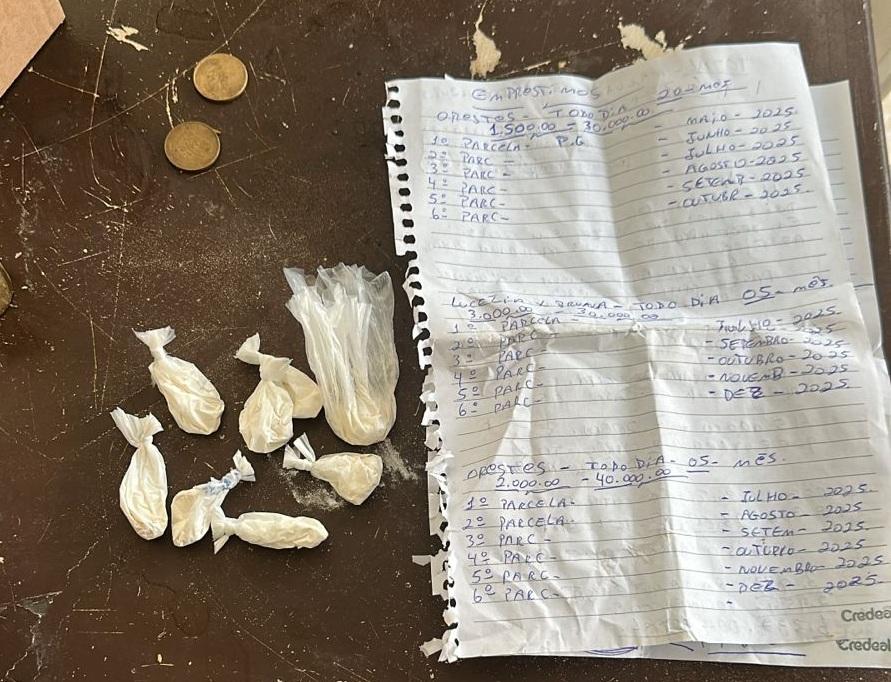 EMPRESTIMOS
ORESTES - TODO DIA 20 - MÊS
1.500,00 = 30.000.00
1º PARCELA - P.G - MAIO - 2025.
2º PARC - - JUNHO - 2025
3º PARC - - JULHO - 2025
4º PARC - - AGOSTO - 2025
5º PARC - - SETEMB - 2025
6º PARC - - OUTUBR - 2025
TODO DIA 05 - MÊS.
3.000.00 - 30.000.00
1º PARCELA - - JULHO - 2025.
2º PARC - - SETEMBRO - 2025
3º PARC - - OUTUBRO - 2025
4º PARC - - NOVEMB - 2025
5º PARC - - DEZ - 2025
6º PARC -
ORESTES - TODO DIA - 05 - MÊS.
2.000.00 - 40.000.00
1º PARCELA - - JULHO - 2025.
2º PARCELA - - AGOSTO - 2025
3º PARC - - SETEM - 2025
4º PARC - - OUTUBRO - 2025
5º PARC - - NOVEMBRO - 2025
6º PARC - - DEZ - 2025
Credeal
Credeal